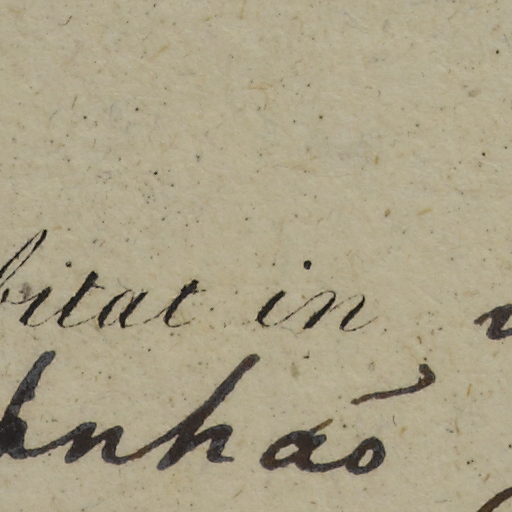 bitat in
anhão